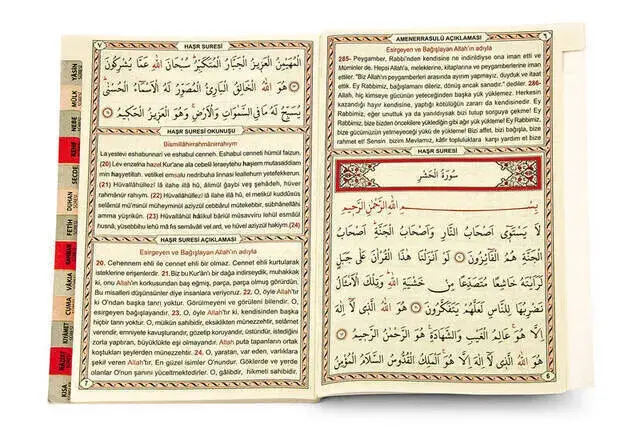 AMENERRASULÜ AÇIKLAMASI
٦
Esirgeyen ve Bağışlayan Allah'ın adıyla
285- Peygamber, Rabbi'nden kendisine ne indirildiyse ona iman etti ve
Mü'minler de. Hepsi Allah'a, meleklerine, kitaplarına ve peygamberlerine iman
ettiler. "Biz Allah'ın peygamberleri arasında ayırım yapmayız, duyduk ve itaat
ettik. Ey Rabbimiz, bağışlamanı dileriz, dönüş ancak sanadır." dediler. 286-
Allah, hiç kimseye gücünün yeteceğinden başka yük yüklemez. Herkesin
kazandığı hayır kendisine, yaptığı kötülüğün zararı da kendisinedir. Ey
Rabbimiz, eğer unuttuk ya da yanıldıysak bizi tutup sorguya çekme! Ey
Rabbimiz, bize bizden öncekilere yüklediğin gibi ağır yük yükleme! Ey Rabbimiz,
bize gücümüzün yetmeyeceği yükü de yükleme! Bizi affet, bizi bağışla, bize
rahmet et! Sensin bizim Mevlamız, kâfir topluluklara karşı yardım et bize
HAŞR SURESİ
سُورَةُ الْحَشْرِ
بِسْمِ اللهِ الرَّحْمٰنِ الرَّحِيمِ
لَا يَسْتَوِٓي اَصْحَابُ النَّارِ وَاَصْحَابُ الْجَنَّةِ اَصْحَابُ
الْجَنَّةِ هُمُ الْفَٓائِزُونَ لَوْ اَنْزَلْنَا هٰذَا الْقُرْاٰنَ عَلٰى جَبَلٍ
لَرَاَيْتَهُ خَاشِعًا مُتَصَدِّعًا مِنْ خَشْيَةِ اللهِ وَتِلْكَ الْاَمْثَالُ
نَضْرِبُهَا لِلنَّاسِ لَعَلَّهُمْ يَتَفَكَّرُونَ هُوَ اللهُ الَّذِي لَٓا اِلٰهَ
اِلَّا هُوَ عَالِمُ الْغَيْبِ وَالشَّهَادَةِ هُوَ الرَّحْمٰنُ الرَّحِيمُ
هُوَ اللهُ الَّذِي لَٓا اِلٰهَ اِلَّا هُوَ اَلْمَلِكُ الْقُدُّوسُ السَّلَامُ الْمُؤْمِنُ
6
٧
HAŞR SURESİ
الْمُهَيْمِنُ الْعَزِيزُ الْجَبَّارُ الْمُتَكَبِّرُ سُبْحَانَ اللهِ عَمَّا يُشْرِكُونَ
هُوَ اللهُ الْخَالِقُ الْبَارِئُ الْمُصَوِّرُ لَهُ الْاَسْمَٓاءُ الْحُسْنٰى
يُسَبِّحُ لَهُ مَا فِي السَّمٰوَاتِ وَالْاَرْضِ وَهُوَ الْعَزِيزُ الْحَكِيمُ
HAŞR SURESİ OKUNUŞU
Bismillâhirrahmânirrahıym
La yestevi eshabunnari ve eshabul cenneh. Eshabul cenneti hümül faizun.
(20) Lev enzelna hazel Kur'ane ala cebelil leraeytehu haşiem mutasaddiam
min haşyetillah. vetilkel emsalu nedribuha linnasi leallehum yetefekkerun.
(21) Hüvallâhüllezî lâ ilahe illâ hû, âlimül ğaybi veş şehâdeh, hüver
rahmânür rahıym. (22) Hüvallâhüllezî lâ ilâhe illâ hû, el melikül kuddûsüs
selâmül mü'minül müheyminül aziyzül cebbârül mütekebbir, sübhânellâhi
amma yüşrikûn. (23) Hüvallâhül hâlikul bâriül müsavviru lehül esmâül
husnâ, yüsebbihu lehû mâ fis semâvâti vel ard, ve hüvel aziyzül hakiym.(24)
HAŞR SURESİ AÇIKLAMASI
Esirgeyen ve Bağışlayan Allah'ın adıyla
20. Cehennem ehli ile cennet ehli bir olmaz. Cennet ehli kurtularak
isteklerine erişenlerdir. 21. Biz bu Kur'ân'ı bir dağa indirseydik, muhakkak
ki, onu Allah'ın korkusundan baş eğmiş, parça, parça olmuş görürdün.
Bu misalleri düşünsünler diye insanlara veriyoruz. 22. O, öyle Allah'tır
ki O'ndan başka tanrı yoktur. Görülmeyeni ve görüleni bilendir. O,
esirgeyen bağışlayandır. 23. O, öyle Allah'tır ki, kendisinden başka
hiçbir tanrı yoktur. O, mülkün sahibidir, eksiklikten münezzehtir, selâmet
verendir, emniyete kavuşturandır, gözetip koruyandır, üstündür, istediğini
zorla yaptıran, büyüklükte eşi olmayandır. Allah puta tapanların ortak
koştukları şeylerden münezzehtir. 24. O, yaratan, var eden, varlıklara
şekil veren Allah'tır. En güzel isimler O'nundur. Göklerde ve yerde
olanlar O'nun şanını yüceltmektedirler. O, gâlibdir, hikmet sahibidir.
7
YÂSİN
MÜLK
NEBE
KEHF
SECDE
DUHAN
FETİH
RAHMAN
VAKIA
CUMA
KIYAMET
KISA